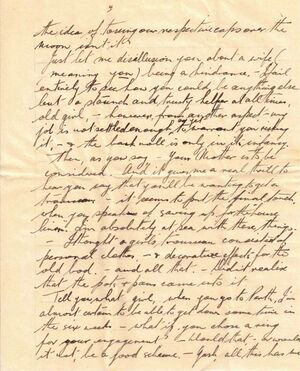 3
the idea of tossing our respective caps over the
moon, isn't it?
Just let me disillusion you about a wife (
meaning you) being a hindrance. I fail
entirely to see how you could be anything else
but a sound and trusty helper at all times,
old girl, - however, from another aspect - my
job is not settled enough to warrant you risking
it, - & the bank roll is only in its infancy.
Then, as you say - your Mother is to be
considered. And it gives me a real thrill to
hear you say that you'll be wanting to get a
trousseau - it seems to put the final touch
when you speak of saving up for the house
linen. I'm absolutely at sea with these things.
- I thought a girl's trousseau consisted of
personal clothes, - & decorative effects for the
old bod. - and all that. - Didn't realise
that the pots & pans came into it.
Tell you what, girl, when you go to Perth, I'm
almost certain to be able to get down some time in
the six weeks - what if you chose a ring
for your engagement? - Would that - or wouldn't
it not, be a good scheme. - Gosh, all this has me